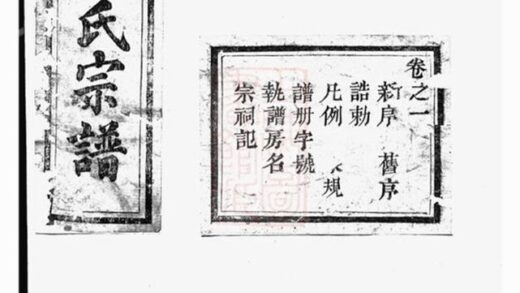 卷之一
新序 舊序
誥勅
凡例 規
譜册字號
執譜房名
宗祠記
氏宗譜